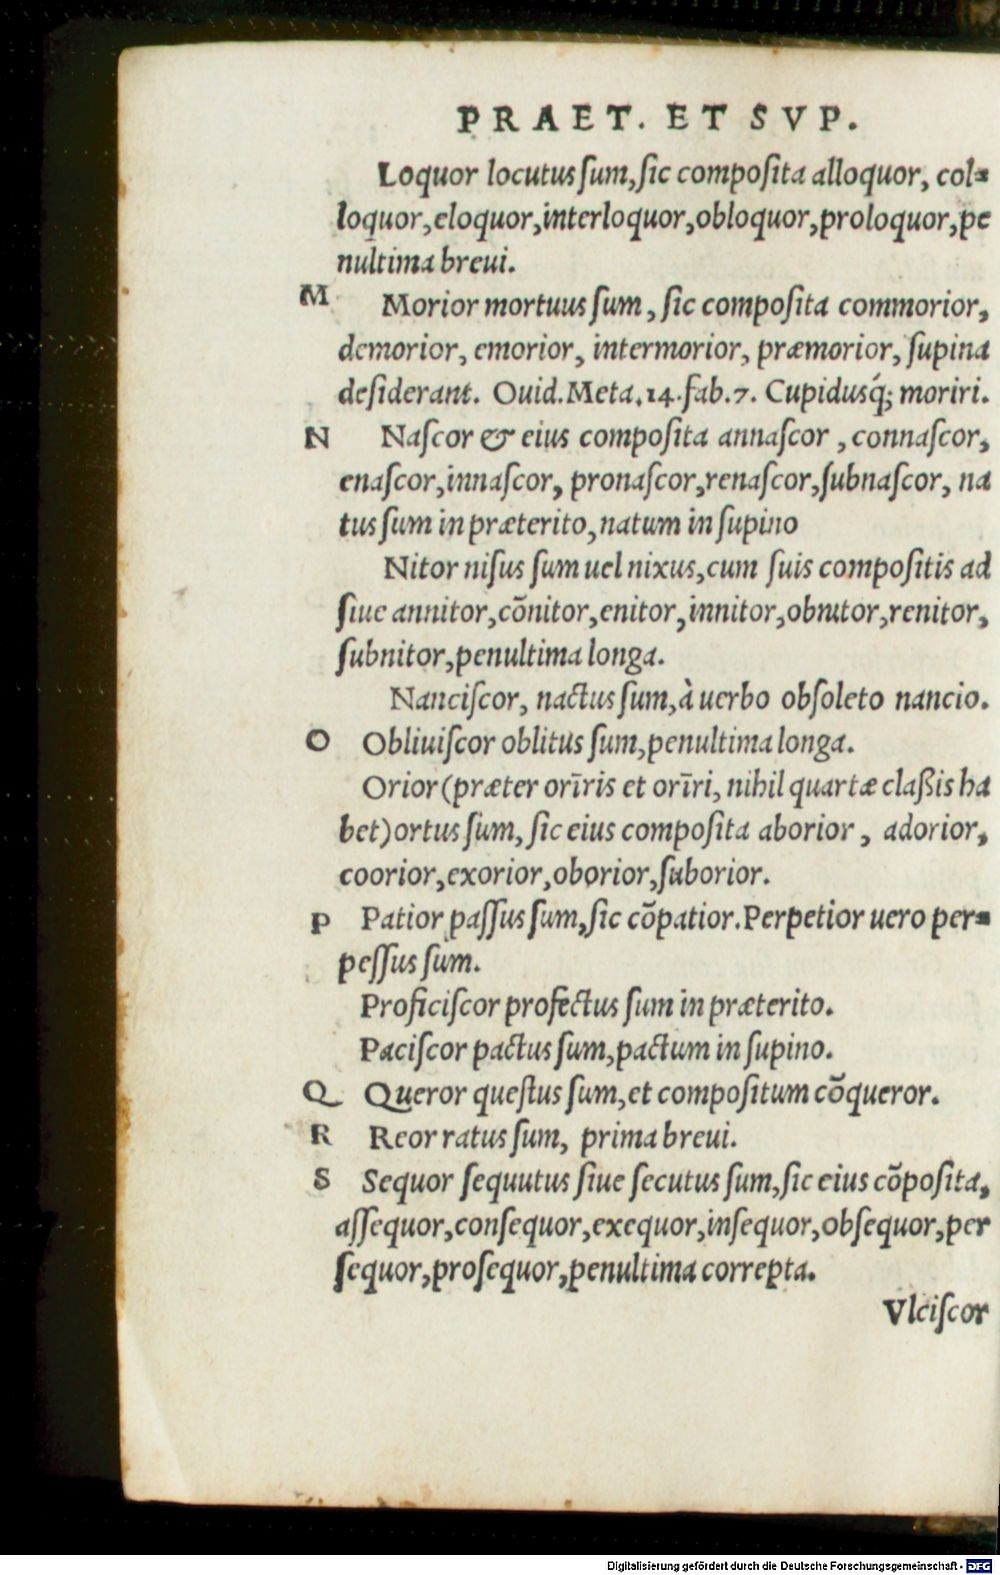 PRAET. ET SVP.
Loquor locutus ſum,ſic compoſita alloquor, col=
loquor,eloquor,interloquor,obloquor,proloquor,pe
nultima breui.
M Morior mortuus ſum, ſic compoſita commorior,
demorior, emorior, intermorior, præmorior, ſupina
deſiderant. Ouid.Meta.14.fab.7. Cupidusq́; moriri.
N Naſcor & eius compoſita annaſcor , connaſcor,
enaſcor,innaſcor, pronaſcor,renaſcor,ſubnaſcor, na
tus ſum in præterito,natum in ſupino
Nitor niſus ſum uel nixus,cum ſuis compoſitis ad
ſiue annitor,cōnitor,enitor,innitor,obnitor,renitor,
ſubnitor,penultima longa.
Nanciſcor, nactus ſum,à uerbo obſoleto nancio.
O Obliuiſcor oblitus ſum,penultima longa.
Orior(præter orīris et orīri, nihil quartæ claßis ha
bet)ortus ſum, ſic eius compoſita aborior , adorior,
coorior,exorior,oborior,ſuborior.
P Patior paſſus ſum,ſic cōpatior.Perpetior uero per=
peſſus ſum.
Proficiſcor profectus ſum in præterito.
Paciſcor pactus ſum,pactum in ſupino.
Q Queror queſtus ſum,et compoſitum cōqueror.
R Reor ratus ſum, prima breui.
S Sequor ſequutus ſiue ſecutus ſum,ſic eius cōpoſita,
aſſequor,conſequor,exequor,inſequor,obſequor,per
ſequor,proſequor,penultima correpta.
Vlciſcor
Digitalisierung gefördert durch die Deutsche Forschungsgemeinschaft - DFG